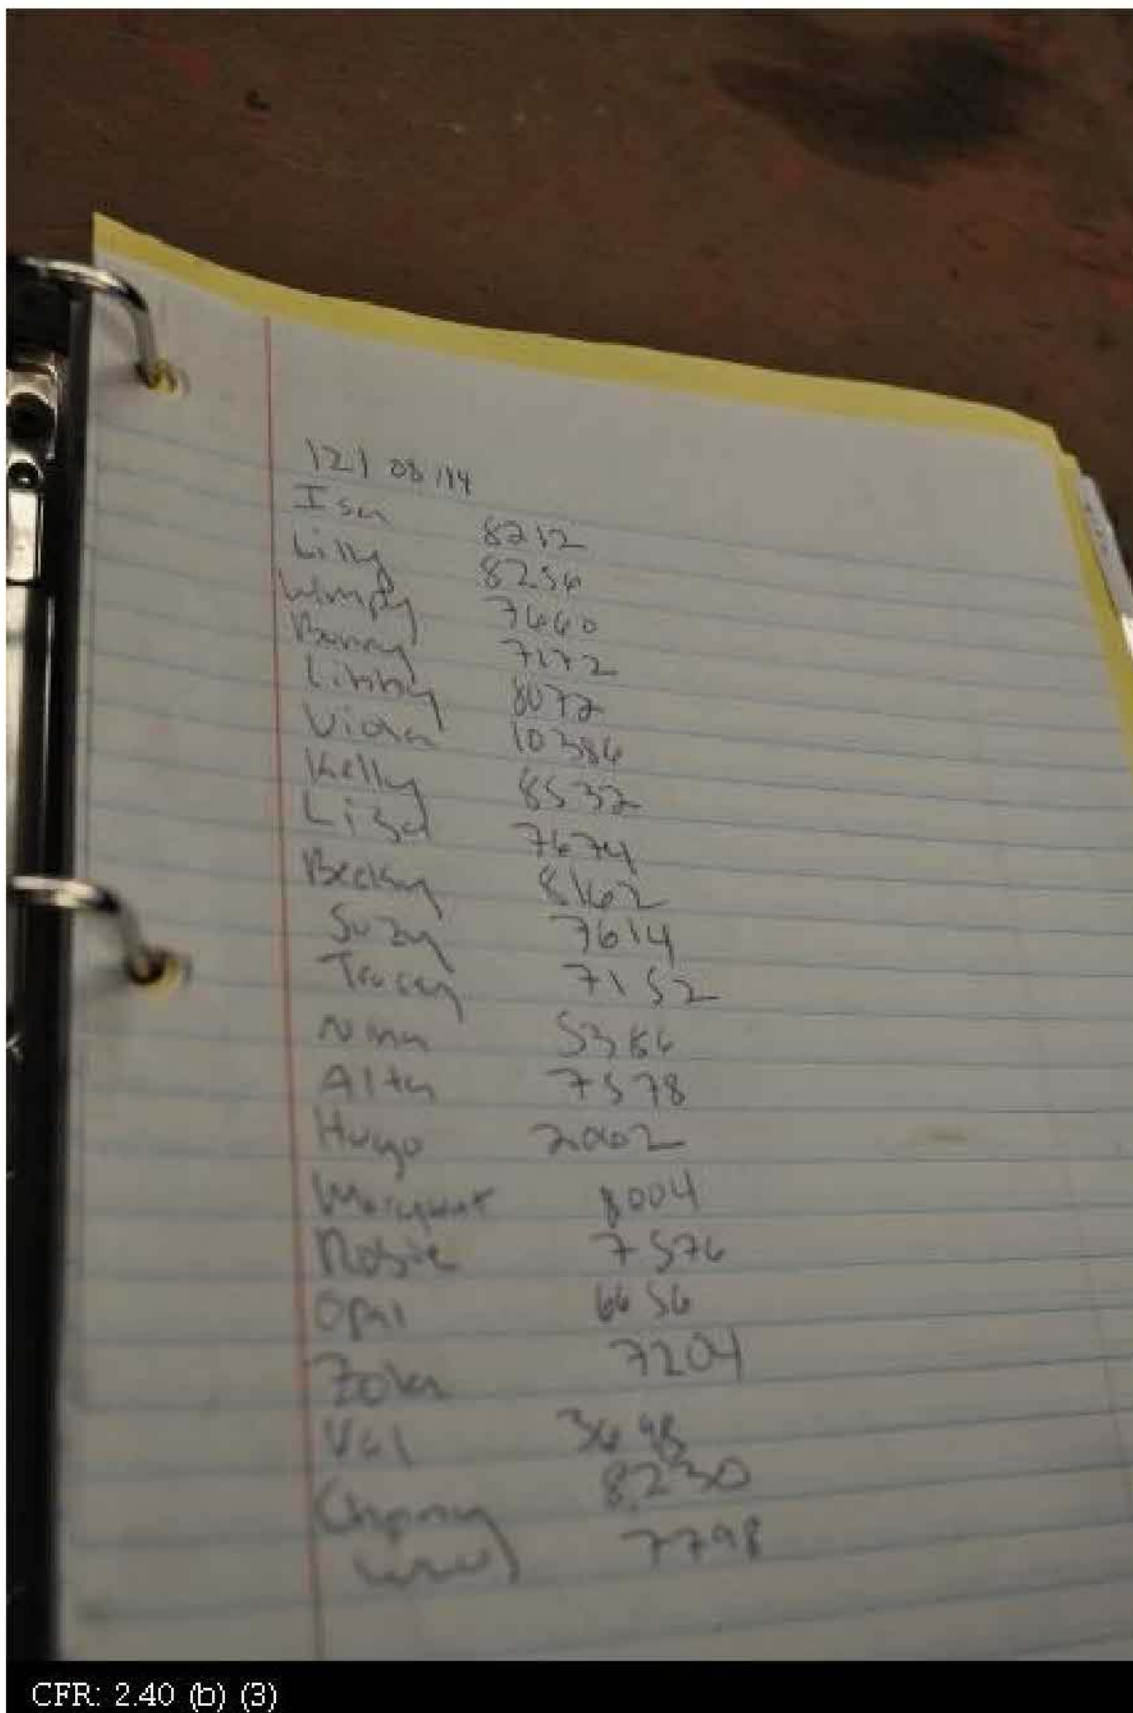 12/08/14
Isa 8212
Lilly 8256
Wimpy 7660
Bunny 7172
Libby 8072
Viola 10386
Kelly 8532
Liza 7674
Becky 8162
Suzy 7614
Traccy 7152
Nina 5366
Alta 7578
Hugo 2002
Margaret 8004
Rosie 7576
Opal 6656
Zola 7204
Val 3698
8230
7798
CFR: 2.40 (b) (3)